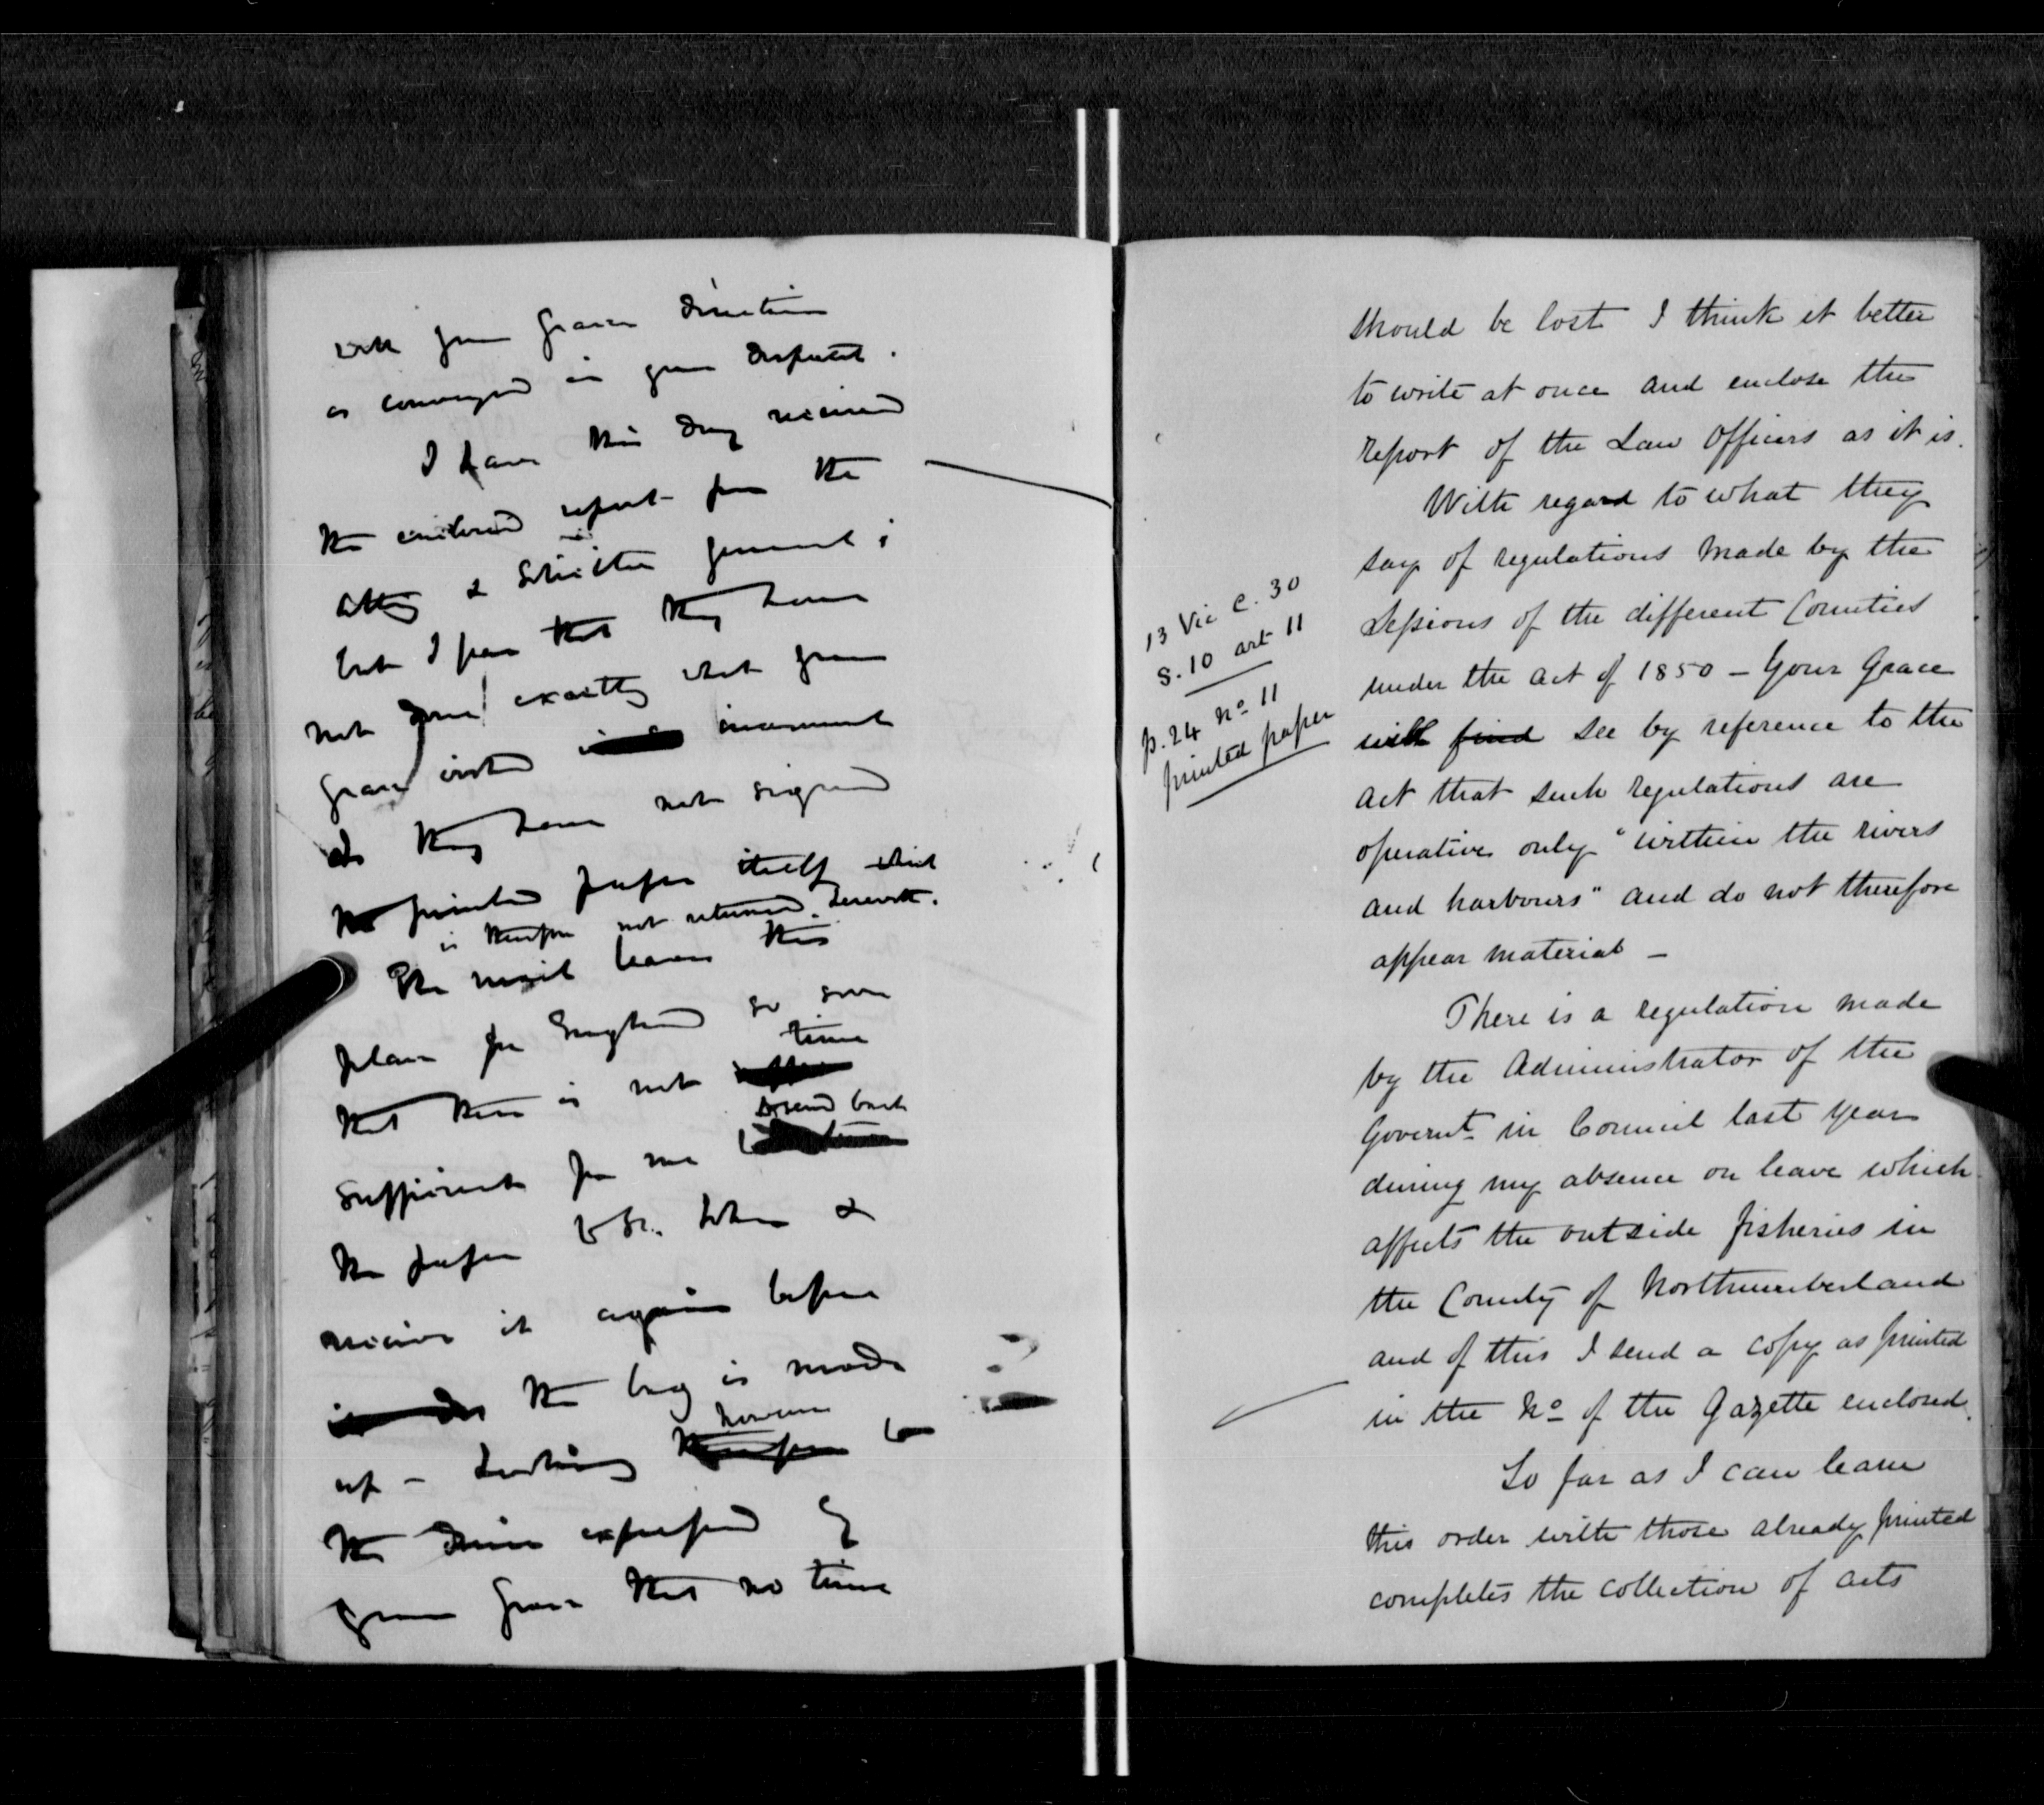 with your Grace's direction
as conveyed in your despatch.
I have this day received
the enclosed report from the
Atty & Solicitor General;
but I fear that they have
not done exactly what your
Grace wished inasmuch
as they have not signed
the printed paper itself which
is therefore not returned herewith.
The mail leaves this
place for England so soon
that there is not time
send back
sufficient for me to
the paper to St. John &
receive it again before
the bag is made
however
up - Looking therefore to
the desire expressed by
your Grace that no time
should be lost I think it better
to write at once and enclose the
report of the Law Officers as it is.
With regard to what they
say of regulations made by the
Sessions of the different Counties
13 Vic C. 30
S. 10 art 11
p. 24 No 11
printed paper
under the Act of 1850 - Your Grace
will find see by reference to the
Act that such regulations are
operative only "within the rivers
and harbours" and do not therefore
appear material -
There is a regulation made
by the Administrator of the
Governt in Council last year
during my absence on leave which
affects the outside fisheries in
the County of Northumberland
and of this I send a copy as printed
in the No of the Gazette enclosed.
So far as I can learn
this order with those already printed
completes the collection of acts